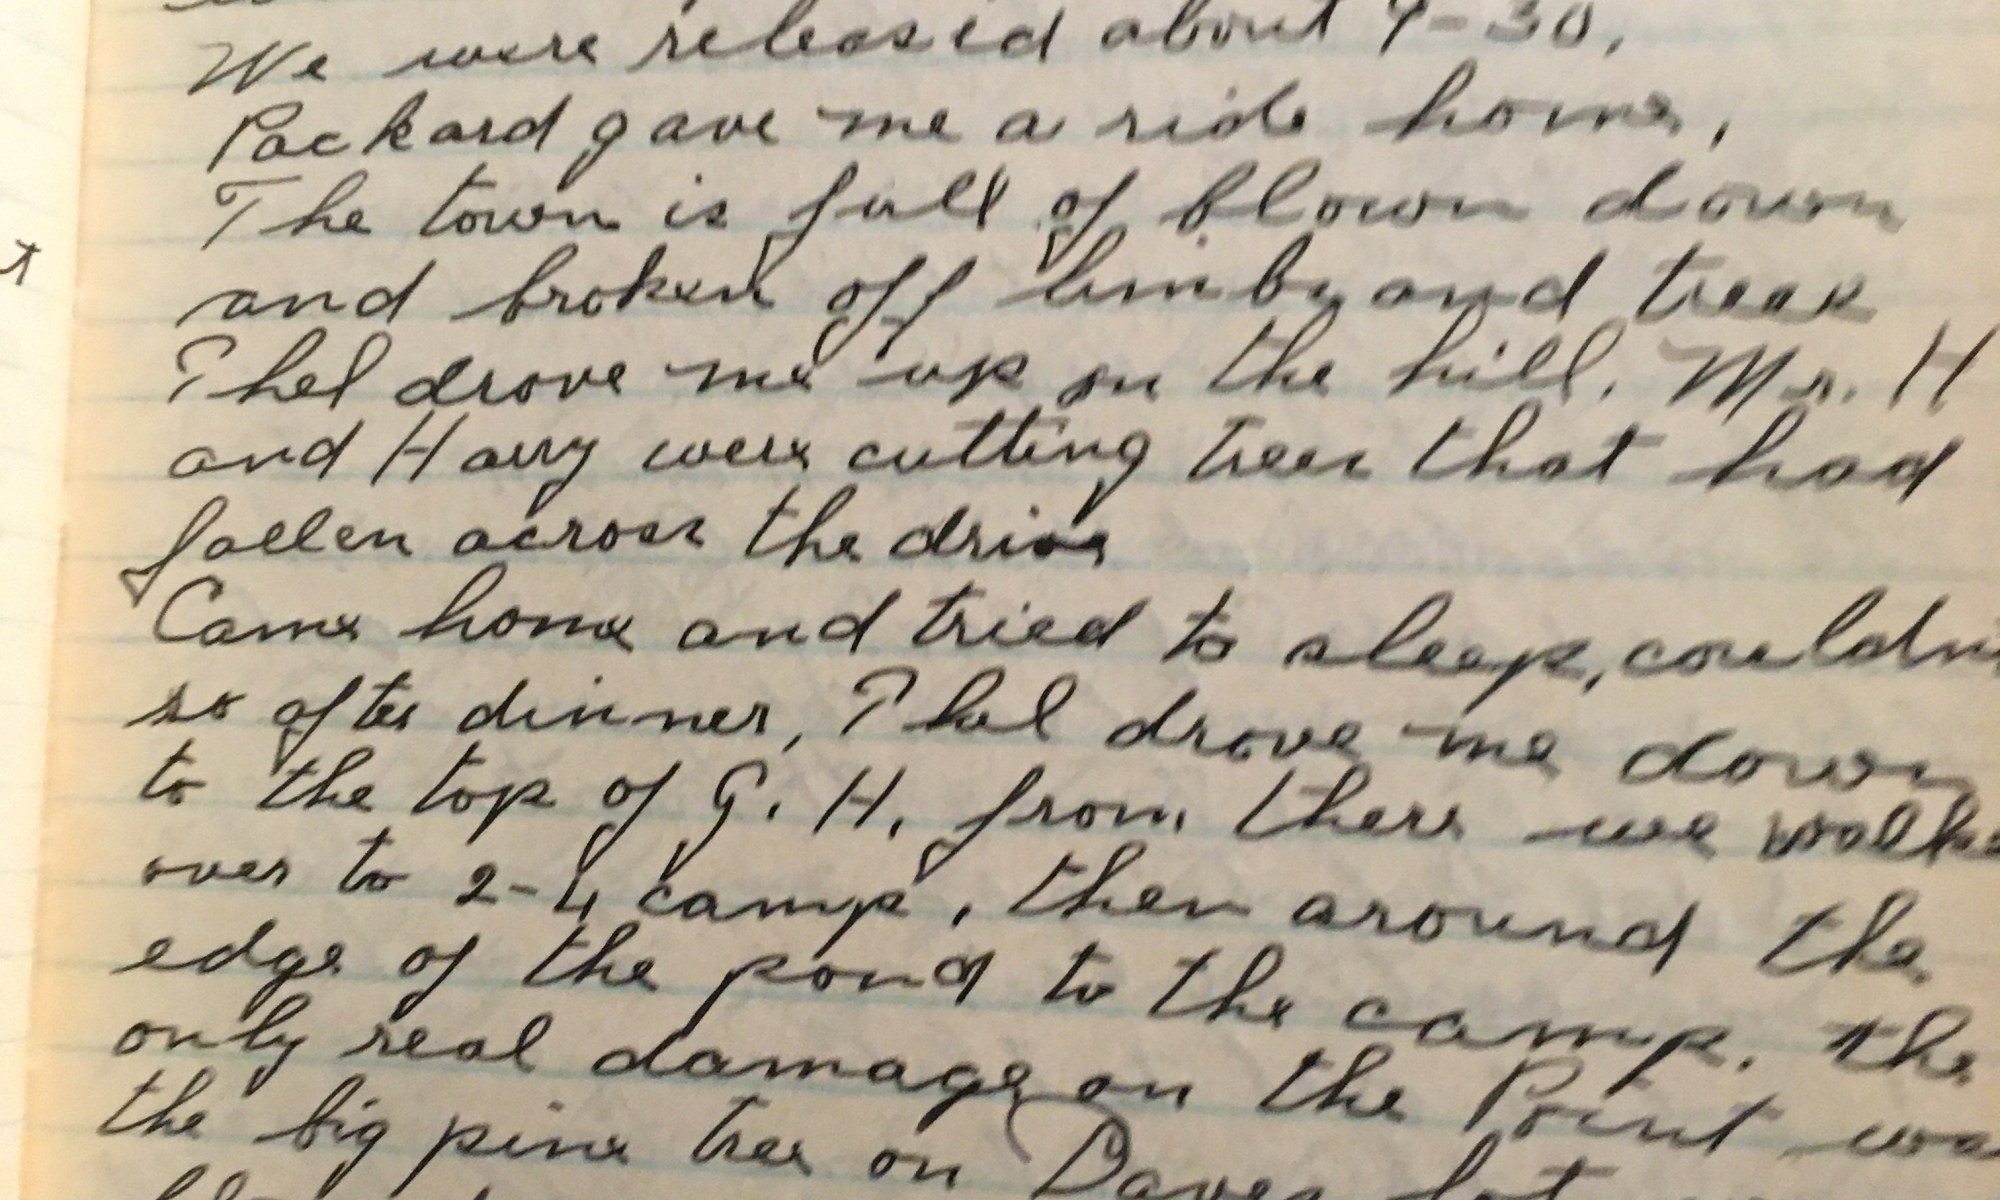 We were released about 9-30,
Packard gave me a ride home,
The town is full of blown down
and broken off limbs and trees
Phel drove me up on the hill. Mr. H
and Harry were cutting trees that had
fallen across the drive
Came home and tried to sleep, couldn
so after dinner, Phel drove me down
to the top of G. H. from there we walke
over to 2-4 camp, then around the
edge of the pond to the camp. the
only real damage on the Point wa
the big pine tree on Daves lot